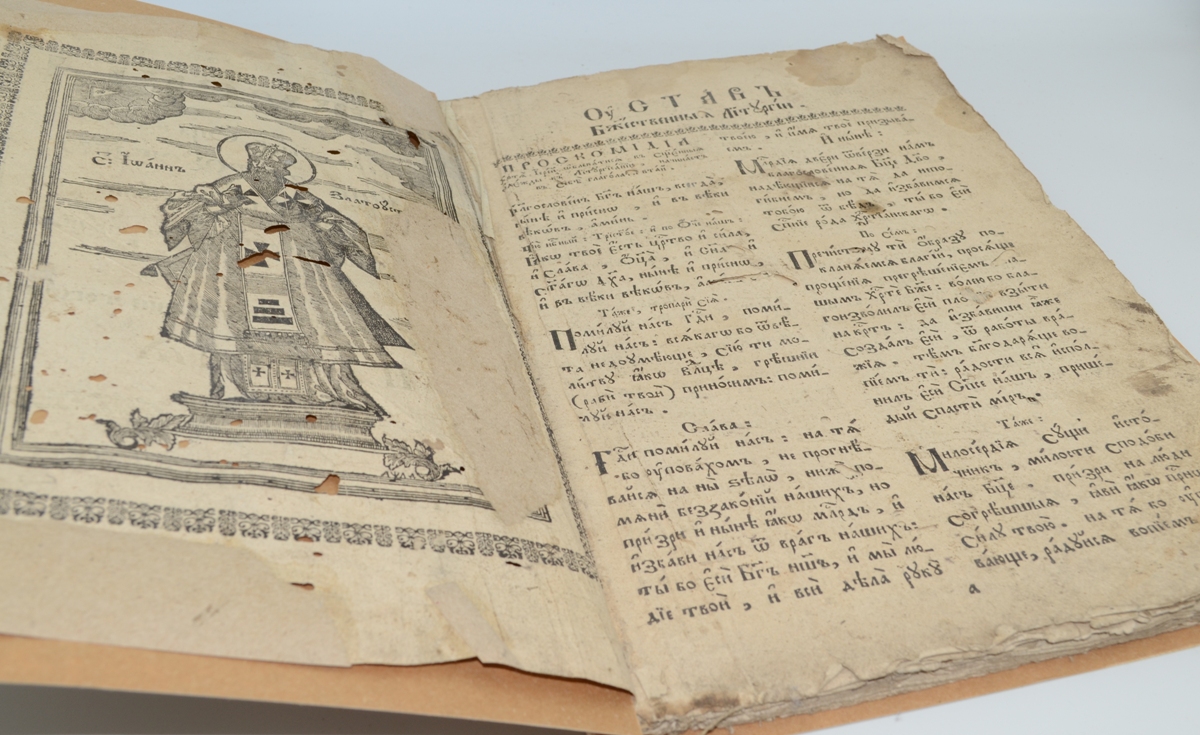 С: Іѡа́ннъ
Златоус
Оу҆СТА́ВЪ
Бж҃е́ственныѧ Лїтꙋргі́и .
ПРОСКОМИ́ДІА
Благослове́нъ Бг҃ъ на́шъ , всегда̀ ,
ны́нѣ и҆ при́снѡ , и҆ въ вѣ́ки
вѣкѡ́въ , а҆ми́нь .
Ꙗ҆́кѡ твоѐ є҆́сть цр҃тво и҆ си́ла ,
и҆ сла́ва , Ѻ҆ц҃а̀ , и҆ сн҃а и҆
ст҃а́гѡ дх҃а , ны́нѣ и҆ при́снѡ ,
и҆ въ вѣ́ки вѣкѡ́въ ,
Та́же , тропари̑ сїѧ̑ .
Поми́лꙋй на́съ Гд҃и , поми́-
лꙋй на́съ : всѧ́кагѡ бо ѿвѣ́-
та недоꙋмѣ́юще , сїю̀ ти мо-
ли́твꙋ ꙗ҆́кѡ вл҃цѣ , грѣ́шнїи
( рабѝ твоѝ ) прино́симъ : поми́-
лꙋй на́съ .
Сла́ва :
Гд҃и поми́лꙋй на́съ : на тѧ́
бо ᲂу҆пова́хомъ , не прогнѣ́-
вайсѧ на ны̀ ѕѣлѡ̀ , нижѐ по-
мѧнѝ беззако́нїй на́шихъ , но
при́зри и҆ ны́нѣ ꙗ҆́кѡ млⷭ҇рдъ , и҆
и҆зба́ви на́съ ѿ вра̑гъ на́шихъ :
ты́ бо є҆сѝ Бг҃ъ на́шъ , и҆ мы̀ лю́-
дїе твоѝ , и҆ всѝ дѣ́ла рꙋкꙋ̀
твоє́ю , и҆ и҆́мѧ твоѐ призыва́-
емъ .
И҆ ны́нѣ :
Мл҃рдїѧ две́ри ѿве́рзи на́мъ
благословє́ннаѧ Бц҃е Дв҃о ,
надѣ́ющїисѧ на тѧ̀ да непо-
ги́бнемъ , но да и҆зба́вимсѧ
тобо́ю ѿ бѣ́дъ , ты̀ бо є҆сѝ
сп҃се́нїе ро́да Хрⷭ҇тїа́нскагѡ .
По се́мъ :
Пречи́стомꙋ тѝ ѻ҆́бразꙋ по-
кланѧ́емсѧ благі́й , просѧ́ще
проще́нїѧ прегрѣше́нїемъ на́-
шымъ Хрⷭ҇тѐ Бж҃е : во́лею бо бла-
гоизво́лилъ є҆сѝ пло́ взы́ти
на крⷭ҇тъ : да и҆зба́виши ꙗ҆̀же
созда́лъ є҆сѝ , ѿ рабо́ты вра́-
жїѧ . тѣ́мъ благода́рѧще во-
пїе́мъ тѝ : ра́дости всѧ̑ и҆спо́л-
нилъ є҆сѝ Сп҃се на́шъ , прише́-
дый спастѝ мі́ръ .
Та́же :
Милосе́рдїѧ сꙋ́щи и҆сто́-
чникъ , ми́лости сподо́би
на́съ Бц҃е . при́зри на лю́ди
согрѣ́шшыѧ , ꙗ҆вѝ ꙗ҆́кѡ при́снѡ
си́лꙋ твою̀ . на тѧ̀ бо
ва́юще , ра́дꙋйсѧ вопїе́мъ
а